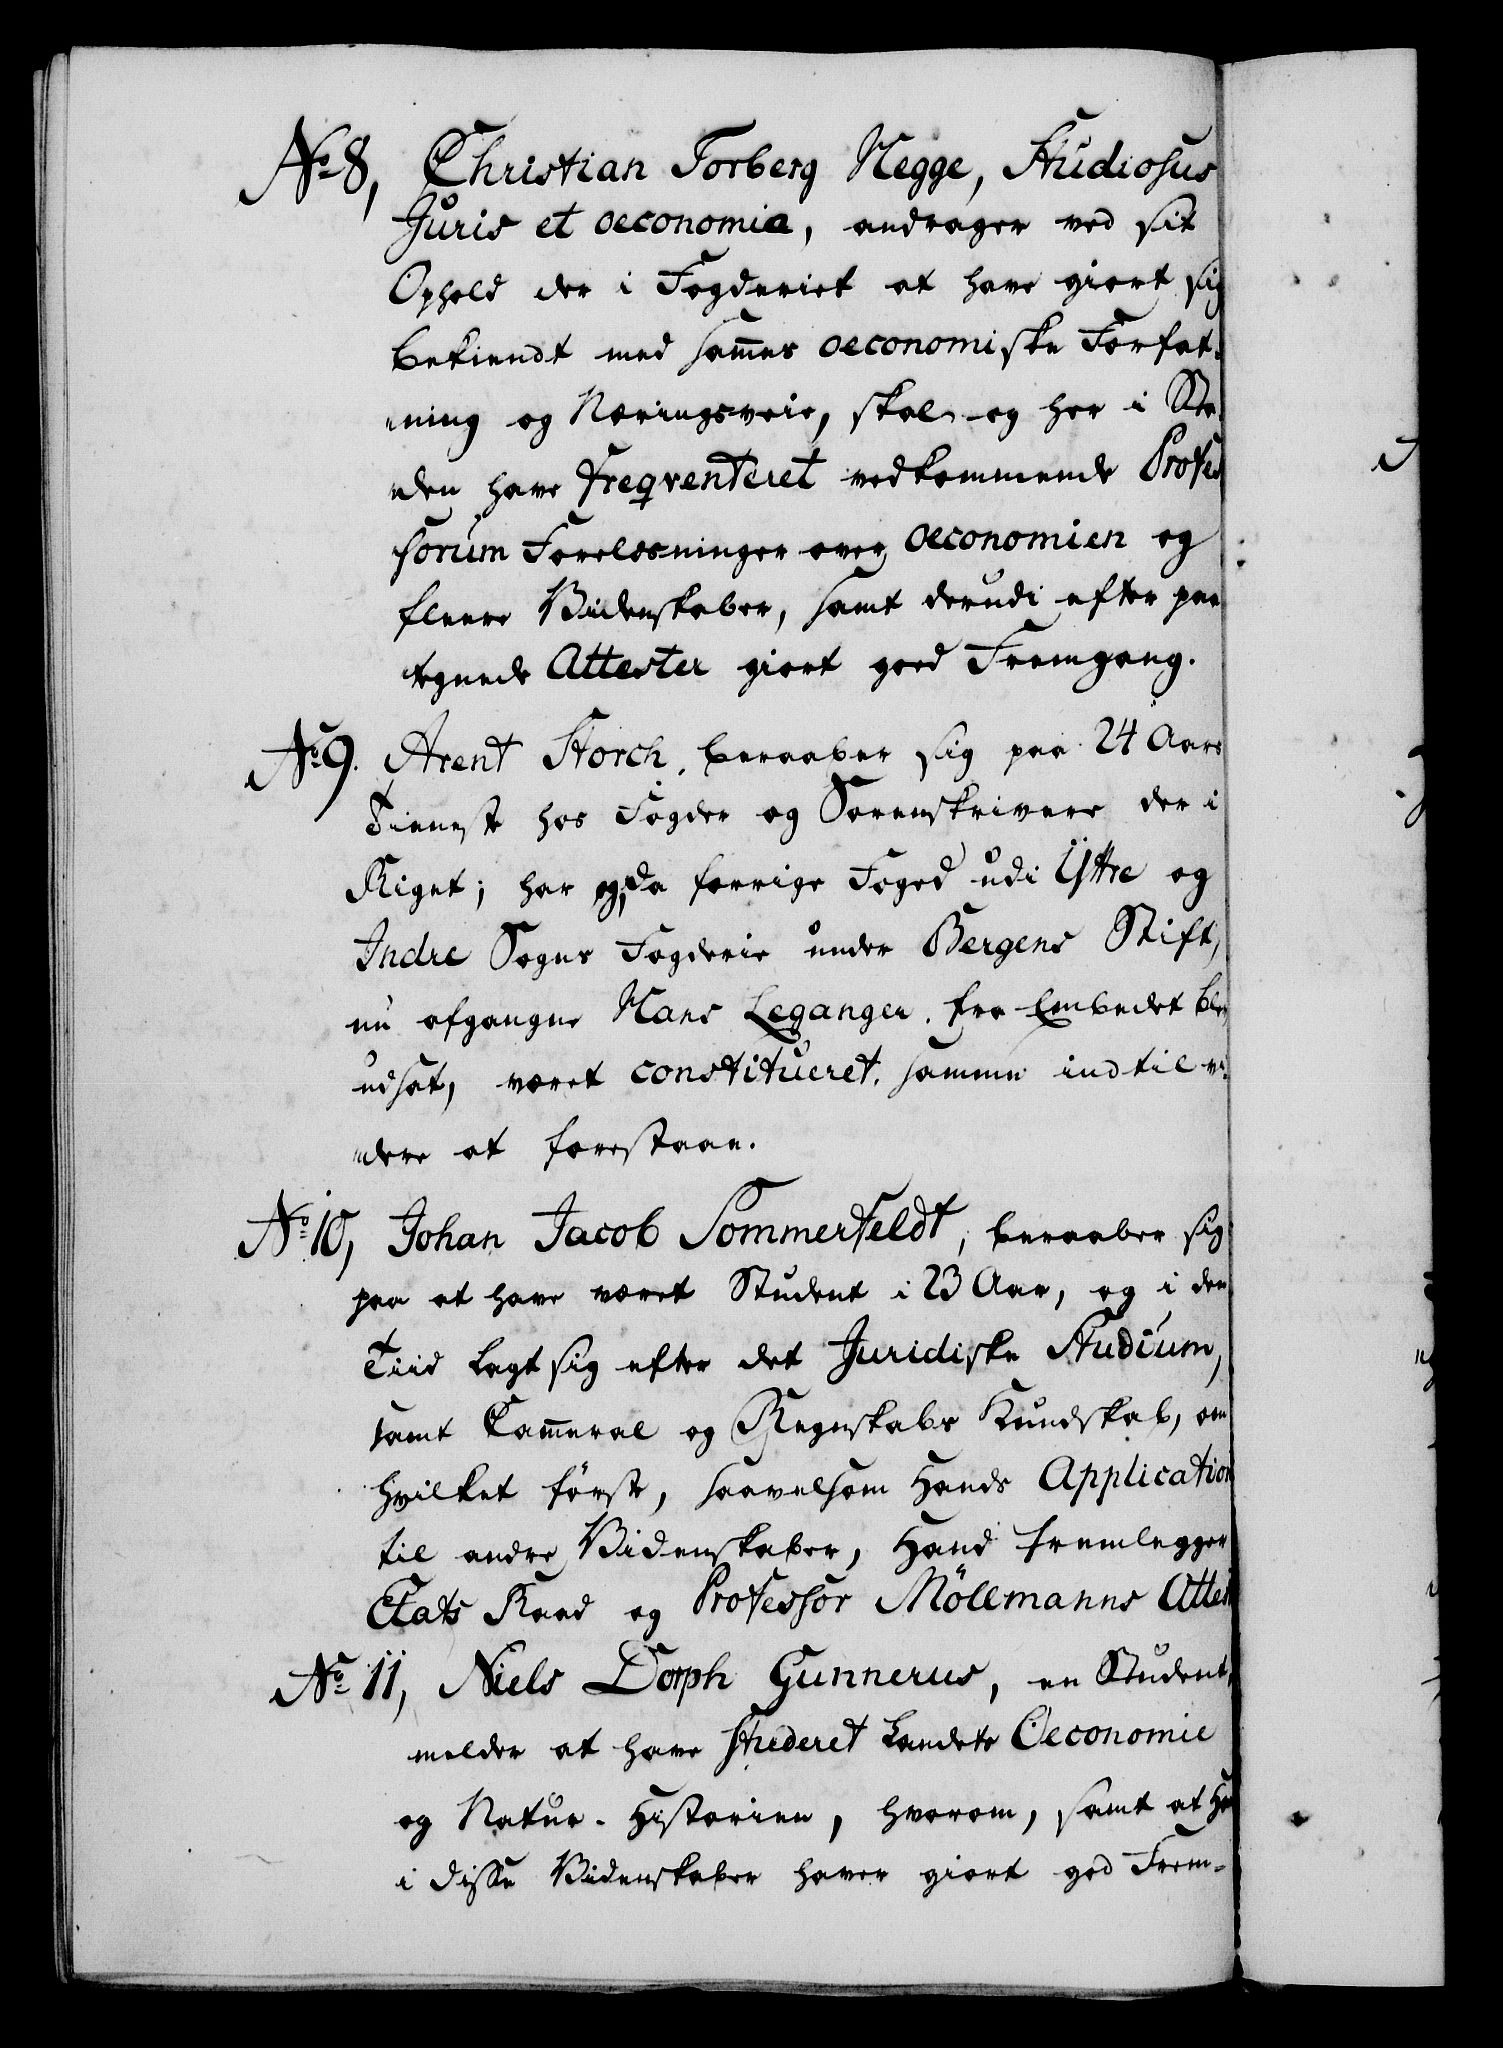 No 8, Christian Torberg Hegge, Studiosus
Juris et oeconomia, andrager ved sit
Ophold der i Fogderiet at have giort sig
bekiendt med sam̅es oeconomiske Forfat-
ning og Næringsveie, skal og her i Sta-
den have freqventeret vedkommende Profes
sorum Forelæsninger over oeconomien og
fleere Videnskaber, samt derudi efter paa
tegnede Attester giort goed Fremgang.
No 9. Arent Storch, beraaber sig paa 24 Aars
Tieneste hos Fogder og Sorenskrivere der i
Riget; har og, da forrige Foged udi Ÿttre og
Indre Sogns Fogderie under Bergens Stift,
nu afgangne Hans Leganger, fra Embedet blev
udsat, været constitueret, samme indtil vi-
dere at forestaae.
No 10, Johan Jacob Sommerfeldt, beraaber sig
paa at have været Student i 23 Aar, og i den
Tiid lagt sig efter det Juridiske Studium,
samt Cam̅eral og Regnskabs Kundskab, om
hvilket første, saavelsom Hands Application
til andre Videnskaber, Hand fremlegger
Etats Raad og Professor Möllmanns Attest
No 11, Niels Dorph Gunnerus, en Student,
melder at have studeret Landets Oeconomie
og Natur-Historien, hvorom, samt at
i disse Videnskaber haver giort god Frem-